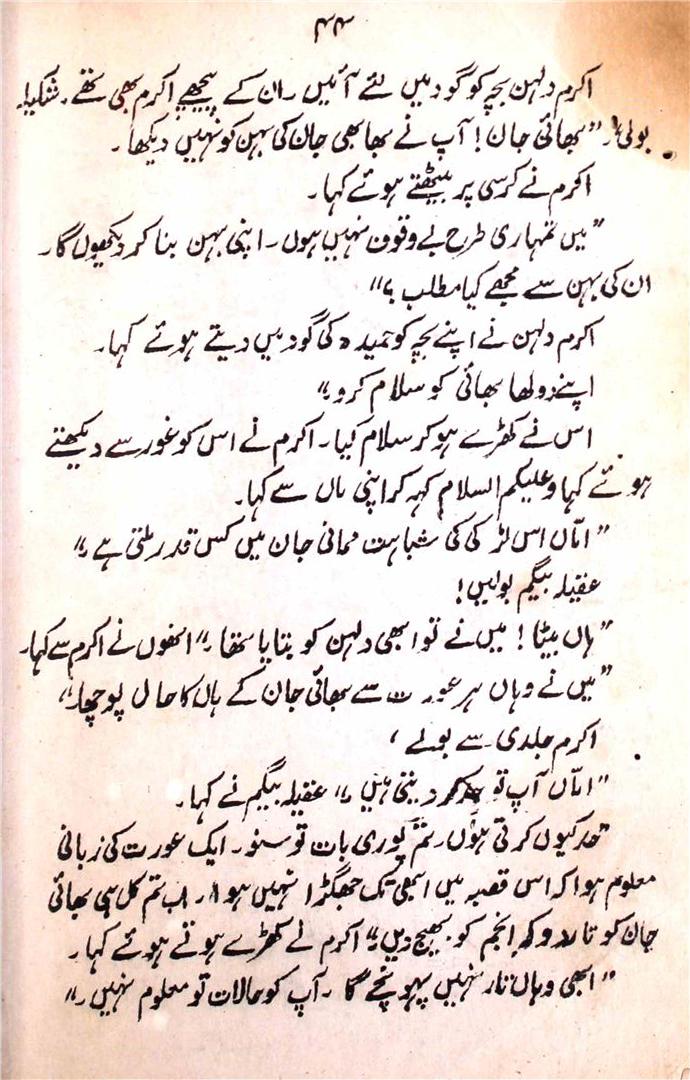 ۴۴
اکرم دلہن بچہ کو گود میں لئے آئیں ۔ ان کے پیچھے اکرم بھی تھے ۔ شکیلہ
بولی ۔ "بھائی جان ! آپ نے بھابھی جان کی بہن کو نہیں دیکھا ۔
اکرم نے کرسی پر بیٹھتے ہوئے کہا ۔
"میں تمہاری طرح بے وقوف نہیں ہوں ۔ اپنی بہن بنا کر دیکھوں گا ۔
ان کی بہن سے مجھے کیا مطلب ؟"
اکرم دلہن نے اپنے بچہ کو حمیدہ کی گود میں دیتے ہوئے کہا ۔
اپنے دولھا بھائی کو سلام کرو ۔"
اس نے کھڑے ہو کر سلام کیا ۔ اکرم نے اس کو غور سے دیکھتے
ہوئے کہا وعلیکم السلام کہہ کر اپنی ماں سے کہا ۔
"امّاں اس لڑکی کی شباہت ممانی جان میں کس قدر ملتی ہے ۔"
عقیلہ بیگم بولیں !
"ہاں بیٹا ! میں نے تو ابھی دلہن کو بتایا تھا ۔" انھوں نے اکرم سے کہا ۔
"میں نے وہاں ہر عورت سے بھائی جان کے ہاں کا حال پوچھا ۔"
اکرم جلدی سے بولے ،
"امّاں آپ تو حد کر دیتی ہیں ۔" عقیلہ بیگم نے کہا ۔
"حد کیوں کرتی ہوں ۔ تم پوری بات تو سنو ۔ ایک عورت کی زبانی
معلوم ہوا کہ اس قصبہ میں ابھی تک جھگڑا نہیں ہوا ۔ اب تم کل ہی بھائی
جان کو تار دو کہ انجم کو بھیج دیں ۔" اکرم نے کھڑے ہوتے ہوئے کہا ۔
"ابھی وہاں تار نہیں پہونچے گا ۔ آپ کو حالات تو معلوم نہیں ۔"